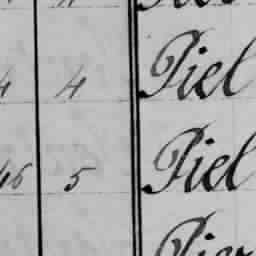 4 4 Piel
46 5 Piel